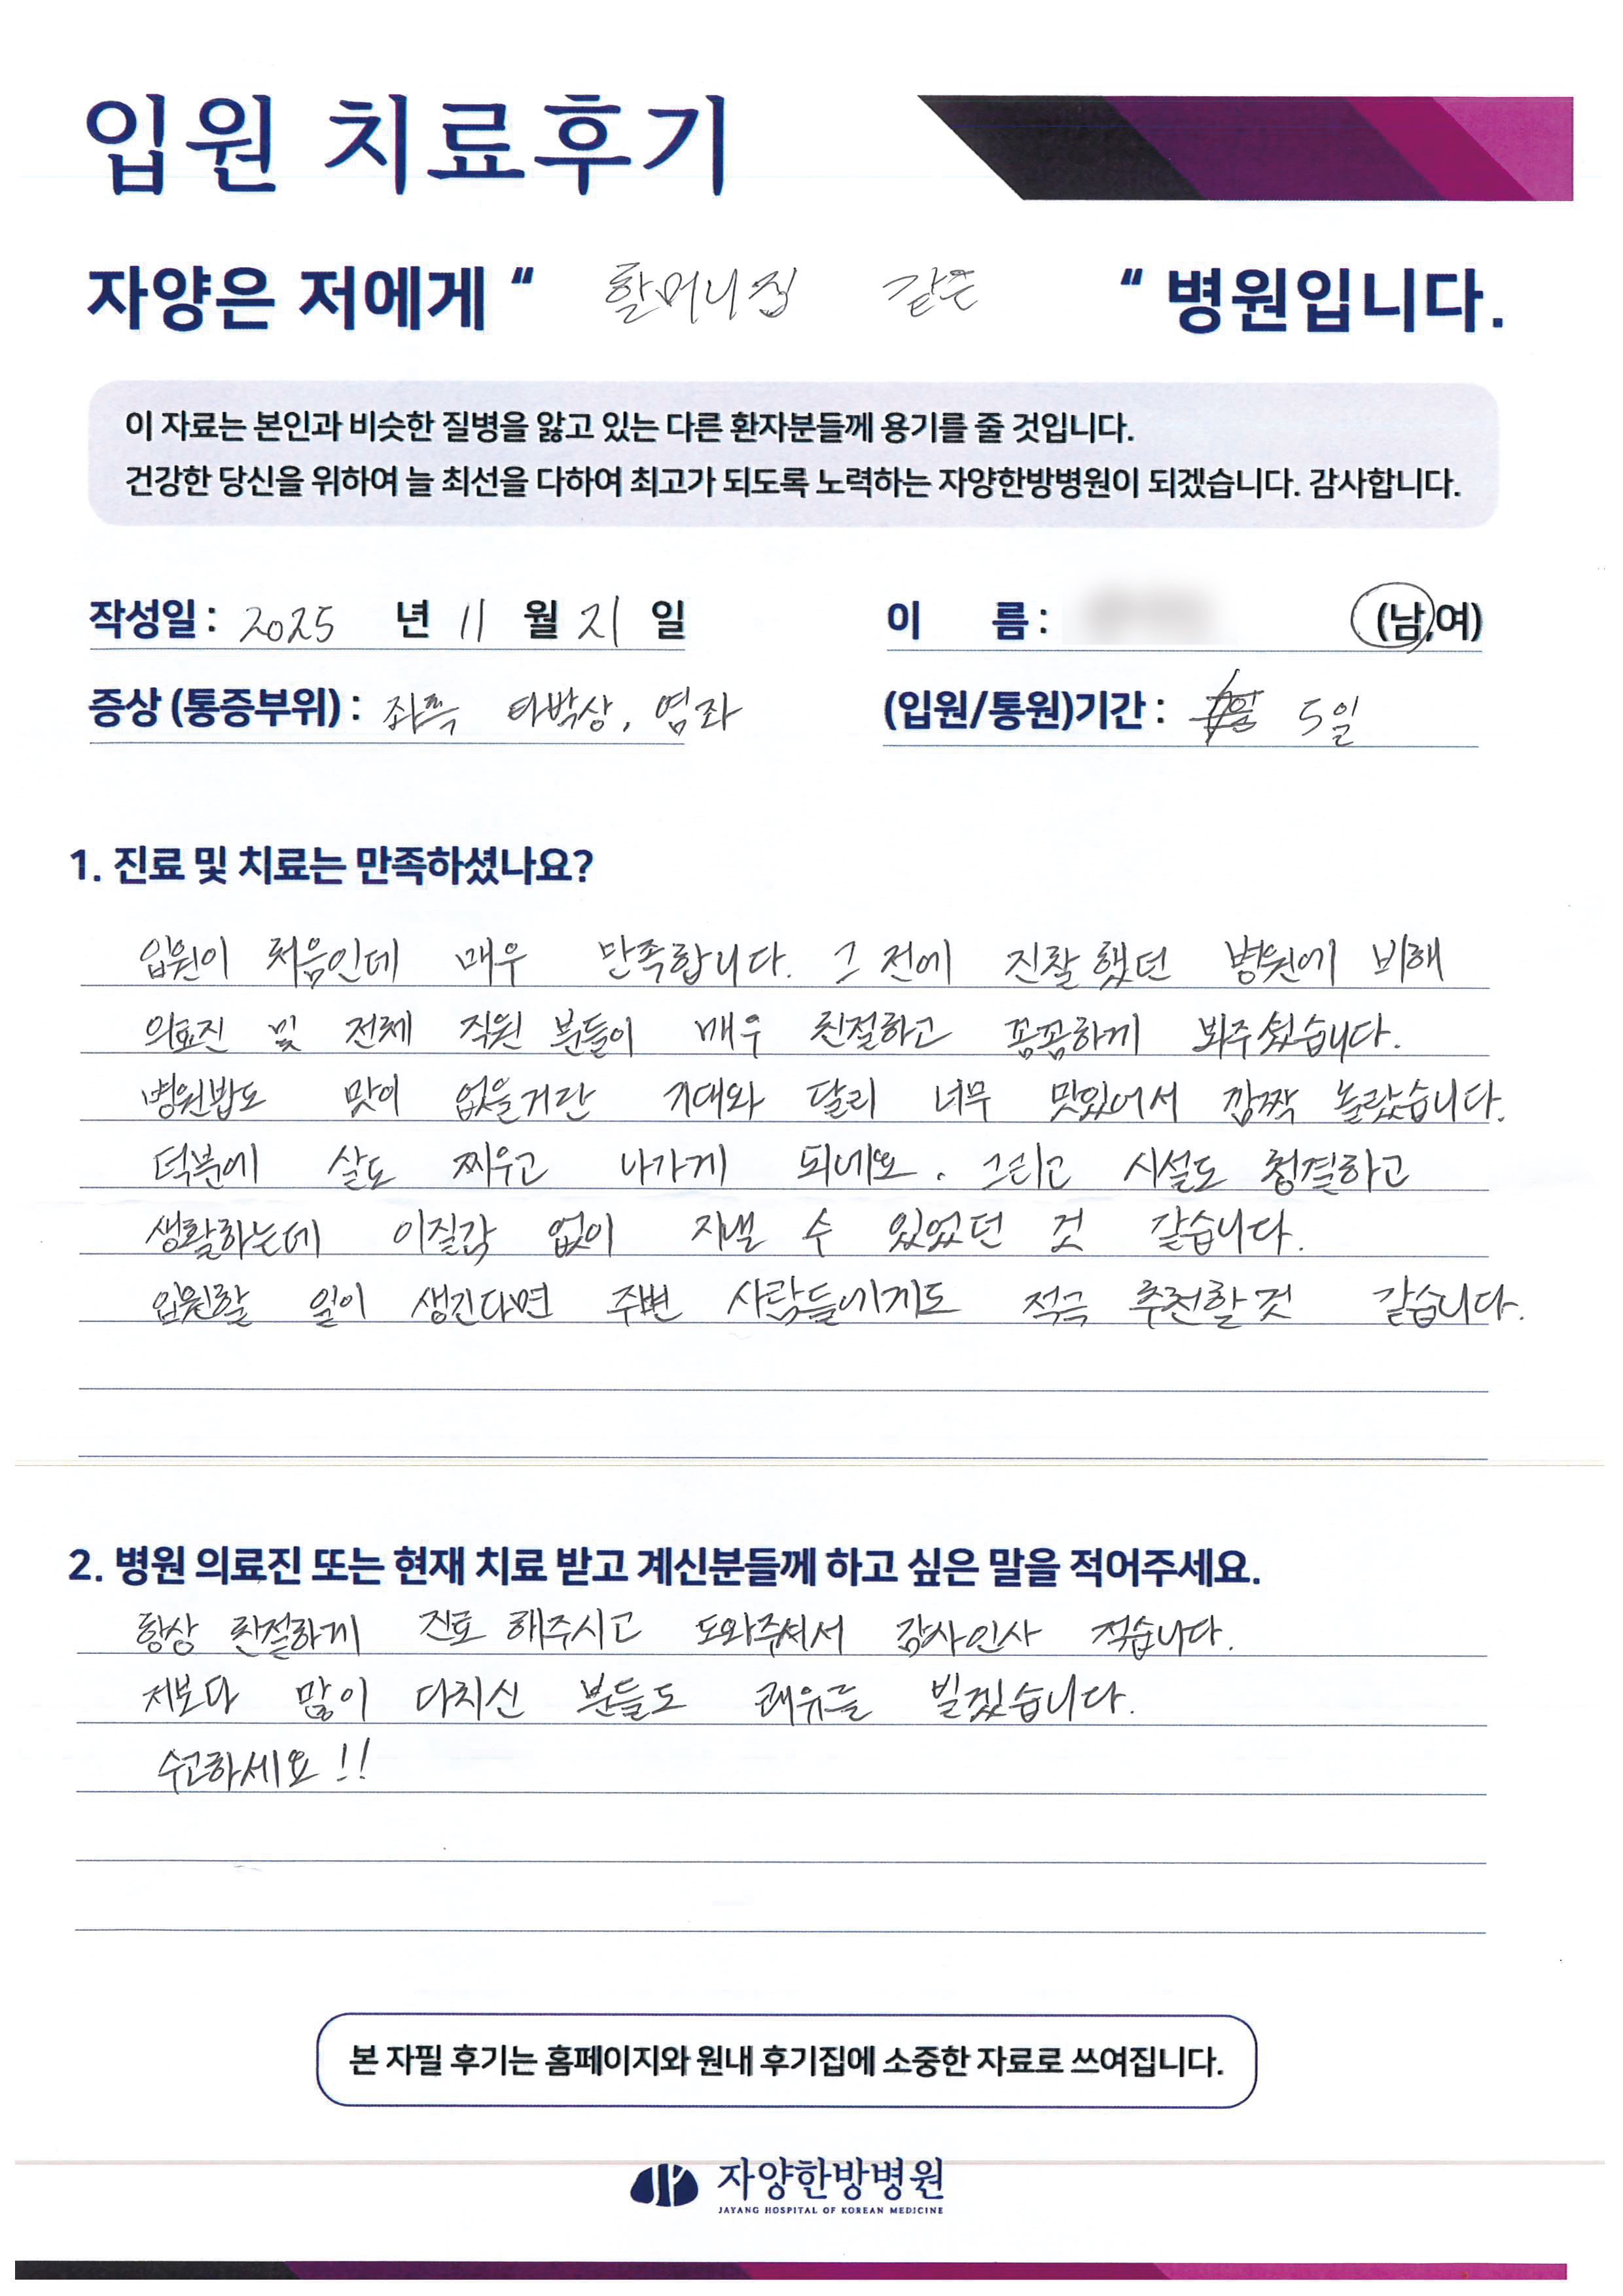 입원 치료후기
자양은 저에게 “ 할머니집 같은 “ 병원입니다.
이 자료는 본인과 비슷한 질병을 앓고 있는 다른 환자분들께 용기를 줄 것입니다.
건강한 당신을 위하여 늘 최선을 다하여 최고가 되도록 노력하는 자양한방병원이 되겠습니다. 감사합니다.
작성일 : 2025 년 11 월 21 일
이 름 : (남,여)
증상 (통증부위) : 좌측 타박상, 염좌
(입원/통원)기간 : 5일
1. 진료 및 치료는 만족하셨나요?
입원이 처음인데 매우 만족합니다. 그 전에 진찰했던 병원에 비해
의료진 및 전체 직원 분들이 매우 친절하고 꼼꼼하게 봐주셨습니다.
병원밥도 맛이 없을거란 기대와 달리 너무 맛있어서 깜짝 놀랐습니다.
덕분에 살도 찌우고 나가게 되네요. 그리고 시설도 청결하고
생활하는데 이질감 없이 지낼 수 있었던 것 같습니다.
입원할 일이 생긴다면 주변 사람들에게도 적극 추천할것 같습니다.
2. 병원 의료진 또는 현재 치료 받고 계신분들께 하고 싶은 말을 적어주세요.
항상 친절하게 진료 해주시고 도와주셔서 감사인사 적습니다.
저보다 많이 다치신 분들도 쾌유를 빌겠습니다.
수고하세요!!
본 자필 후기는 홈페이지와 원내 후기집에 소중한 자료로 쓰여집니다.
자양한방병원
JAYANG HOSPITAL OF KOREAN MEDICINE